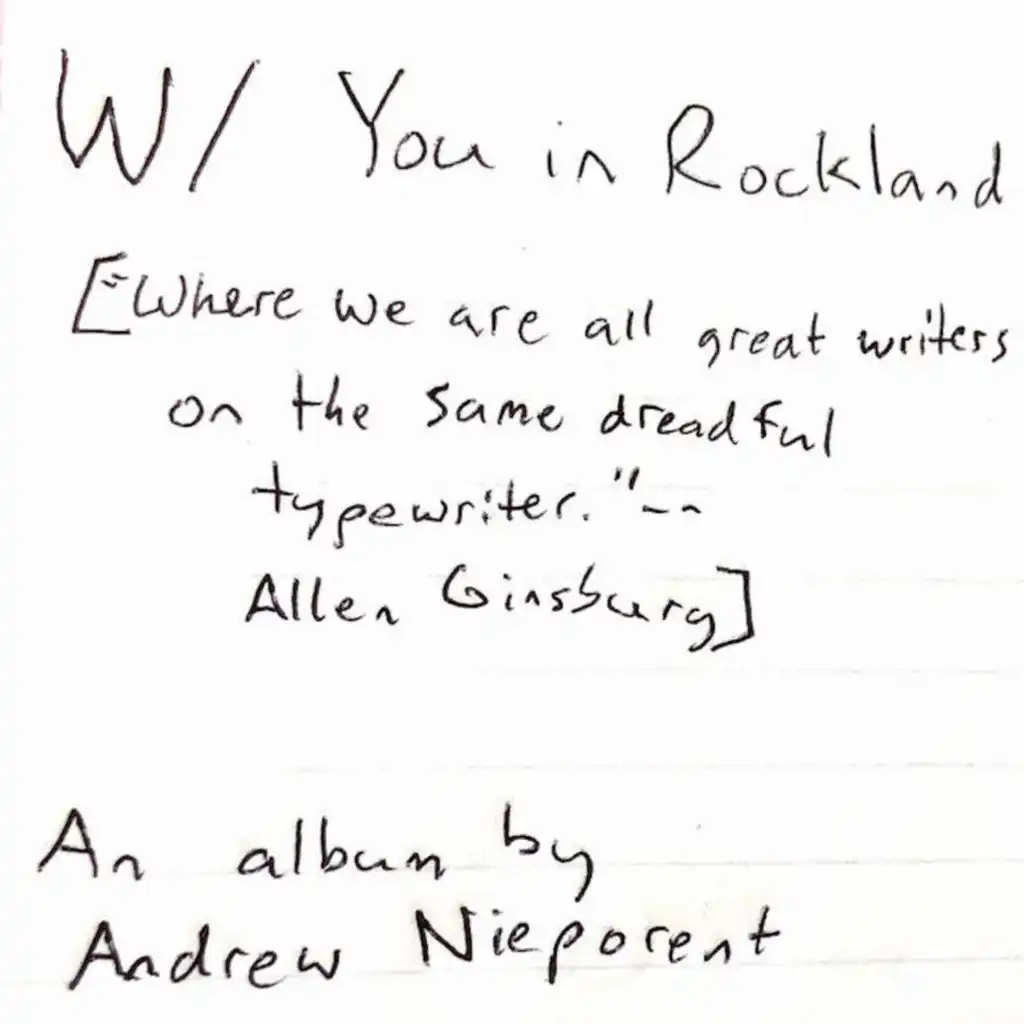 W/ You in Rockland
["Where we are all great writers
on the same dreadful
typewriter."--
Allen Ginsburg]
An album by
Andrew Nieporent